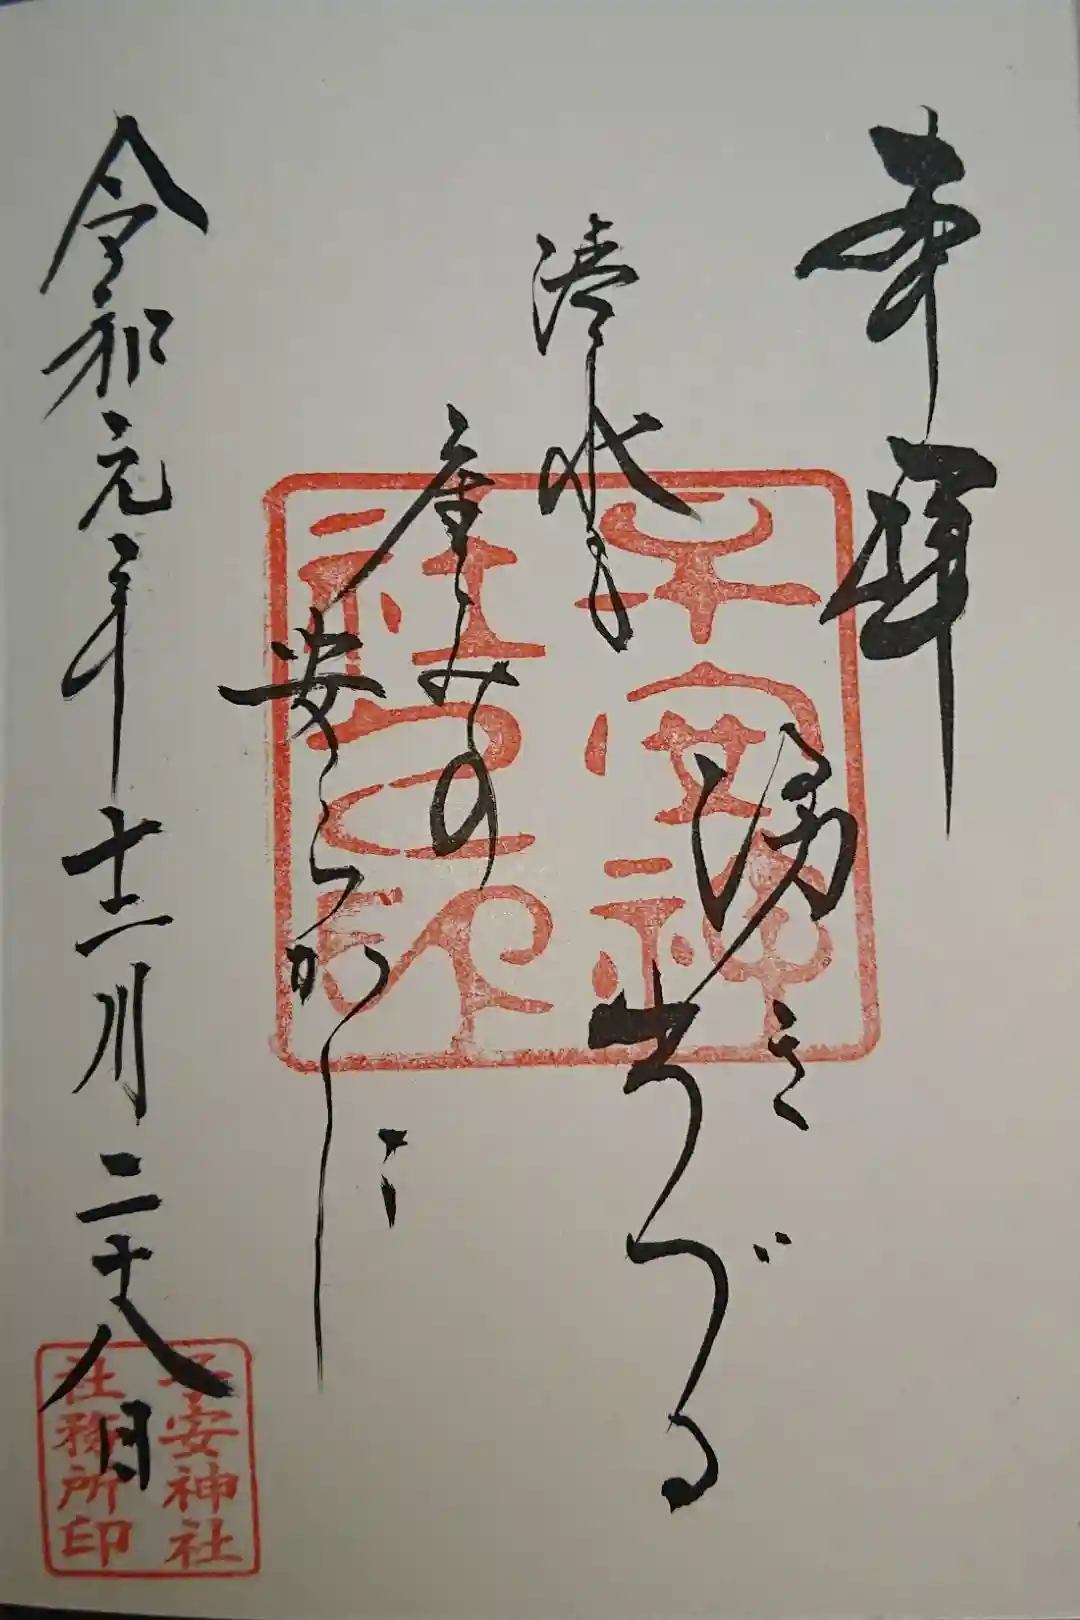 奉拝
清水も
湧き
出づる
産みの
安らかに
令和元年十二月二十八日
子安神
社之印
子安神社
社務所印